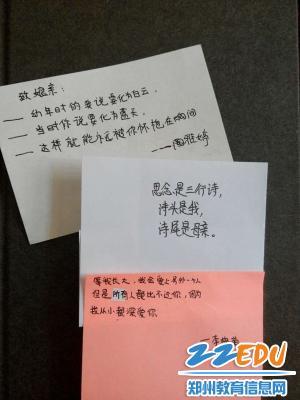 致娘亲：
——幼年时的我说要化为白云，
——当时你说要化为蓝天，
——这样就能永远被你怀抱在胸间
——陶雅婷
思念是三行诗，
诗头是我，
诗尾是母亲。
等我长大，我会爱上另外一个人
但是所有人都比不过你，因为
我从小都深爱你
——李
ZZEDU
郑州教育信息网